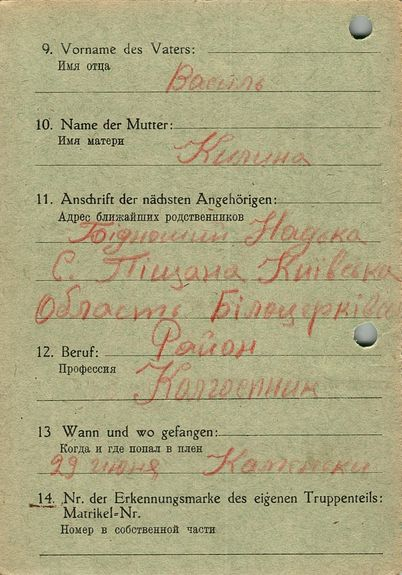 9. Vorname des Vaters:
Имя отца
Василь
10. Name der Mutter:
Имя матери
Килина
11. Anschrift der nächsten Angehörigen:
Адрес ближайших родственников
Надька
С. Піщана Київська
Область Білоцерківс
Район
12. Beruf:
Профессия
Колгоспник
13 Wann und wo gefangen:
Когда и где попал в плен
29 июня
14. Nr. der Erkennungsmarke des eigenen Truppenteils:
Matrikel-Nr.
Номер в собственной части